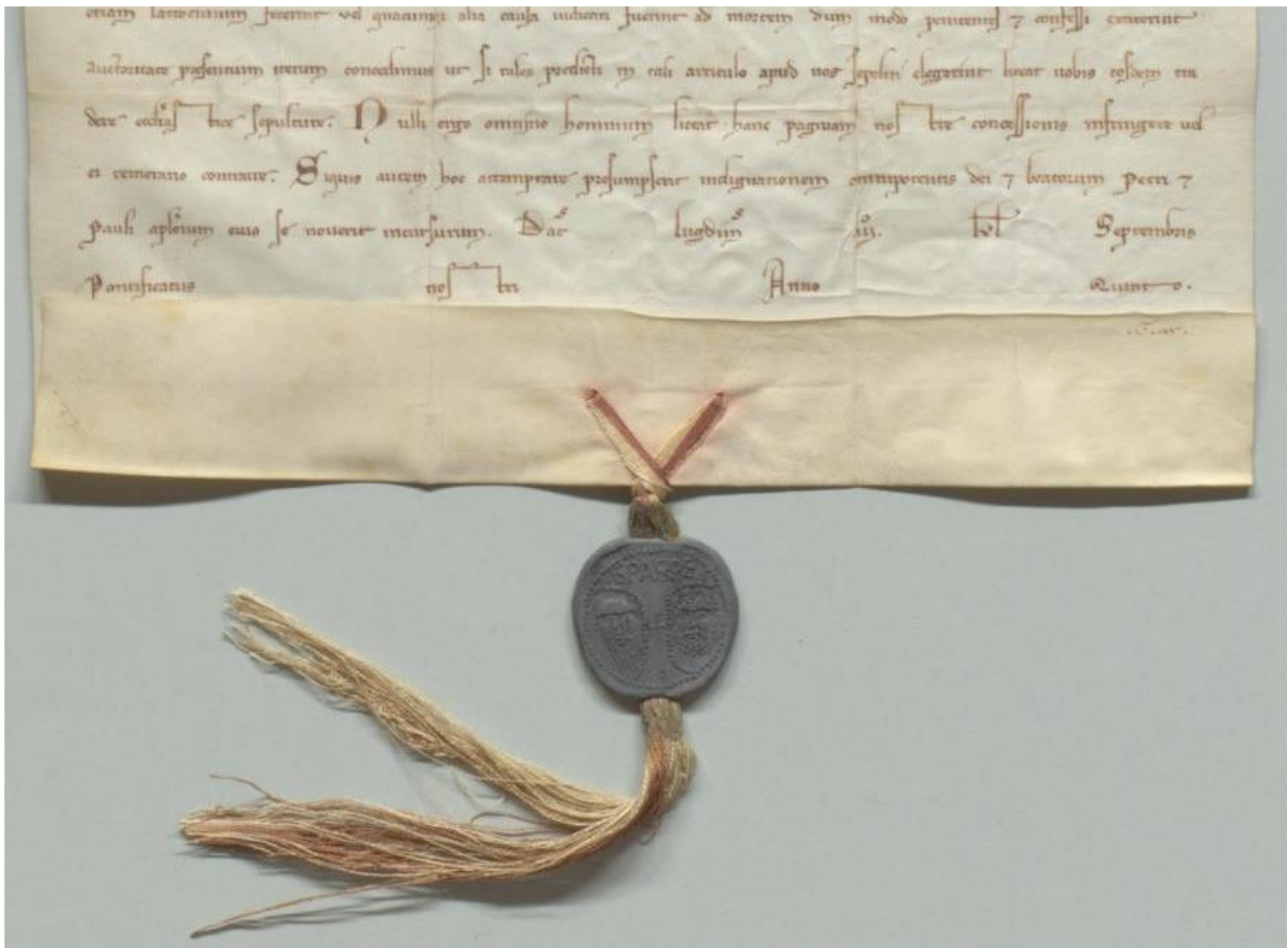 etiam latrocinium fecerint vel quacunque alia causa iudicati fuerint ad mortem dum modo penitentes ⁊ confessi extiterint
auctoritate presentium iterum concedimus ut si tales predicti in tali articulo apud uos sepeliri elegerint liceat uobis eosdem tra
dere eccliastice sepulture. Nulli ergo omnino hominum liceat hanc paginam nostre concessionis infringere uel
ei temerario contraire. Siquis autem hoc attemptare presumpserit indignationem omnipotentis dei ⁊ beatorum Petri ⁊
Pauli aplorum eius se nouerit incursurum. Dat Lugdun iii. kl Septembris
Pontificatus nostri Anno Quinto.
SPASPE